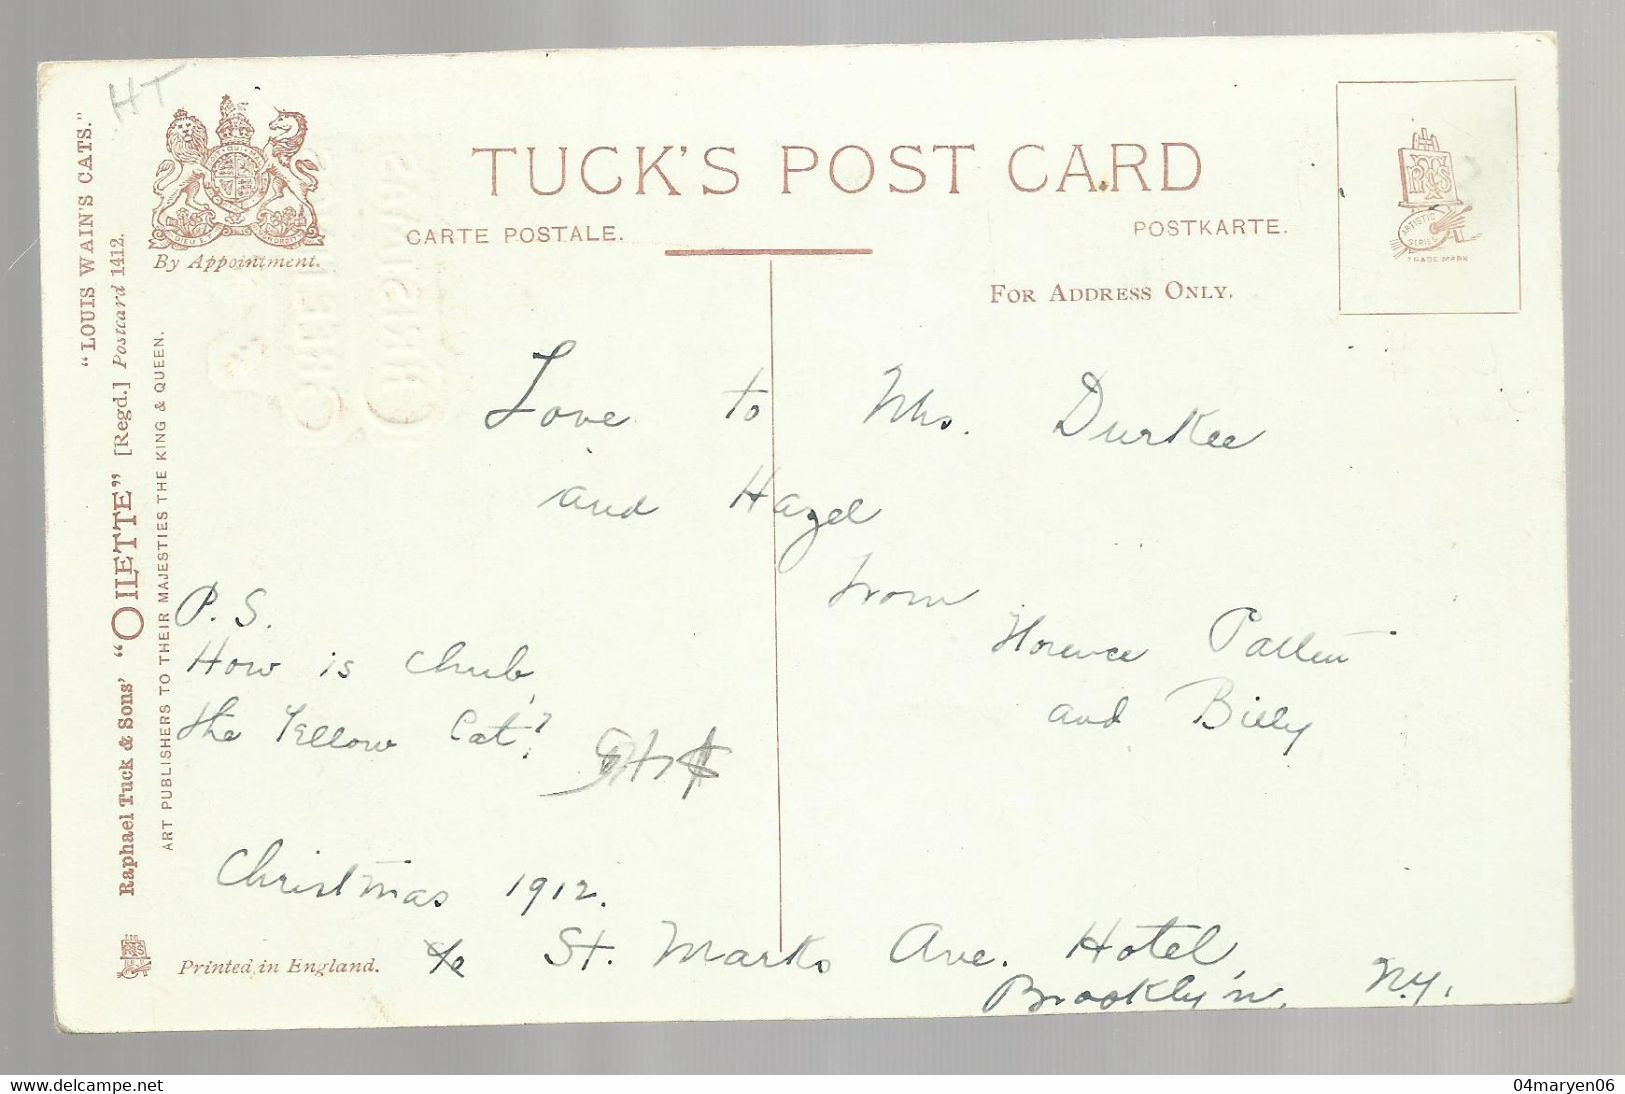 HT
"LOUIS WAIN'S CATS."
Raphael Tuck & Sons' "OILETTE" [Regd.] Postcard 1412.
ART PUBLISHERS TO THEIR MAJESTIES THE KING & QUEEN.
By Appointment.
TUCK'S POST CARD
CARTE POSTALE.
POSTKARTE.
FOR ADDRESS ONLY.
ARTISTIC
SERIES
TRADE MARK
Love to Mrs. Durkee
and Hazel
from
Florence Pallen
and Billy
P.S.
How is Chub,
the Yellow Cat?
Christmas 1912.
St. Marks Ave. Hotel,
Brooklyn, N.Y.
Printed in England.
www.delcampe.net
04maryen06